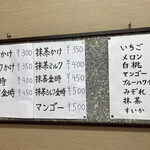 かけ ¥300
かけ ¥350
時 ¥400
時 ¥450
抹茶かけ ¥350
抹茶ミルク ¥400
抹茶金時 ¥450
抹茶ミルク金時 ¥500
マンゴー ¥500
いちご
メロン
白桃
マンゴー
ブルーハワイ
みぞれ
抹茶
すいか